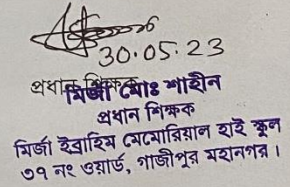 30.05.23
প্রধান শিক্ষক
মির্জা মোঃ শাহীন
প্রধান শিক্ষক
মির্জা ইব্রাহিম মেমোরিয়াল হাই স্কুল
৩৭ নং ওয়ার্ড, গাজীপুর মহানগর।